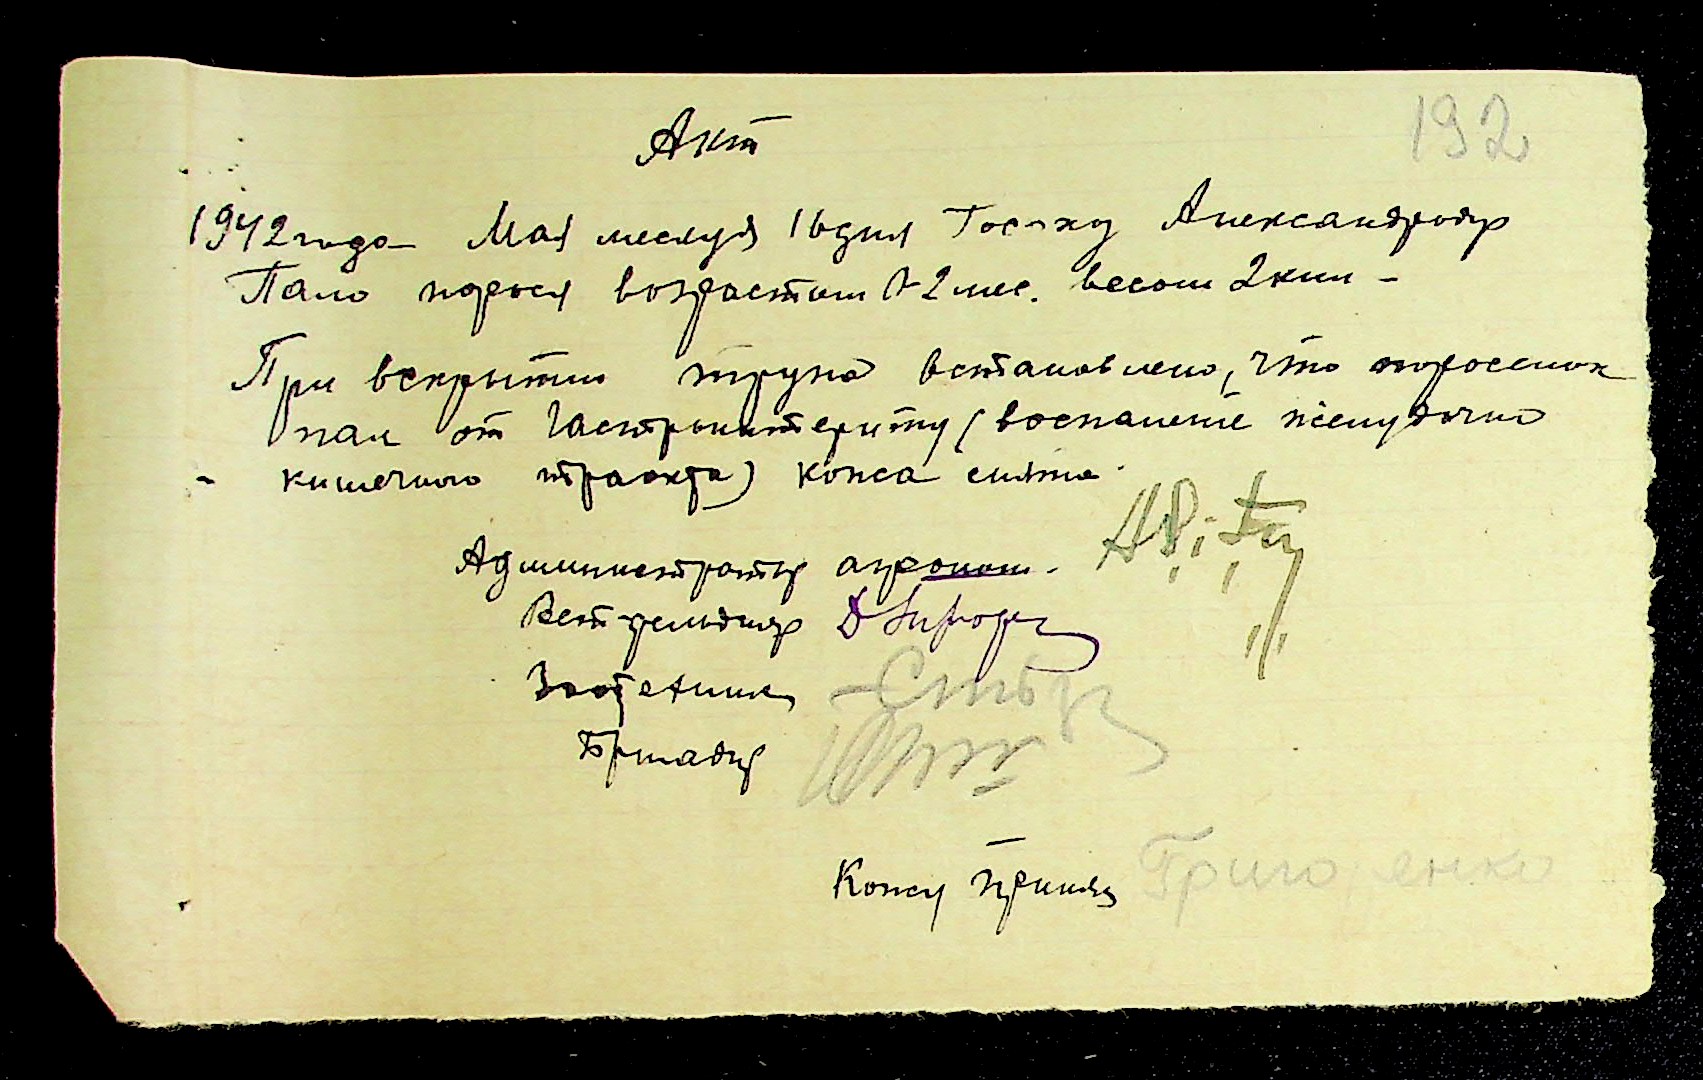 192
Акт
1942 года Мая месяця 16 дня Госп-ху Александродар
Пало порося возрастом 1-2 мес. весом 2 кил -
При вскрытии трупа встановлено, что поросенок
пал от Гастроинтериту (воспаление желудочно
- кишечного тракта) кожа снята.
Администратор агроном.
Ветфельдшер
Зоотехник
Бригадир
Кожу принял Григоренко